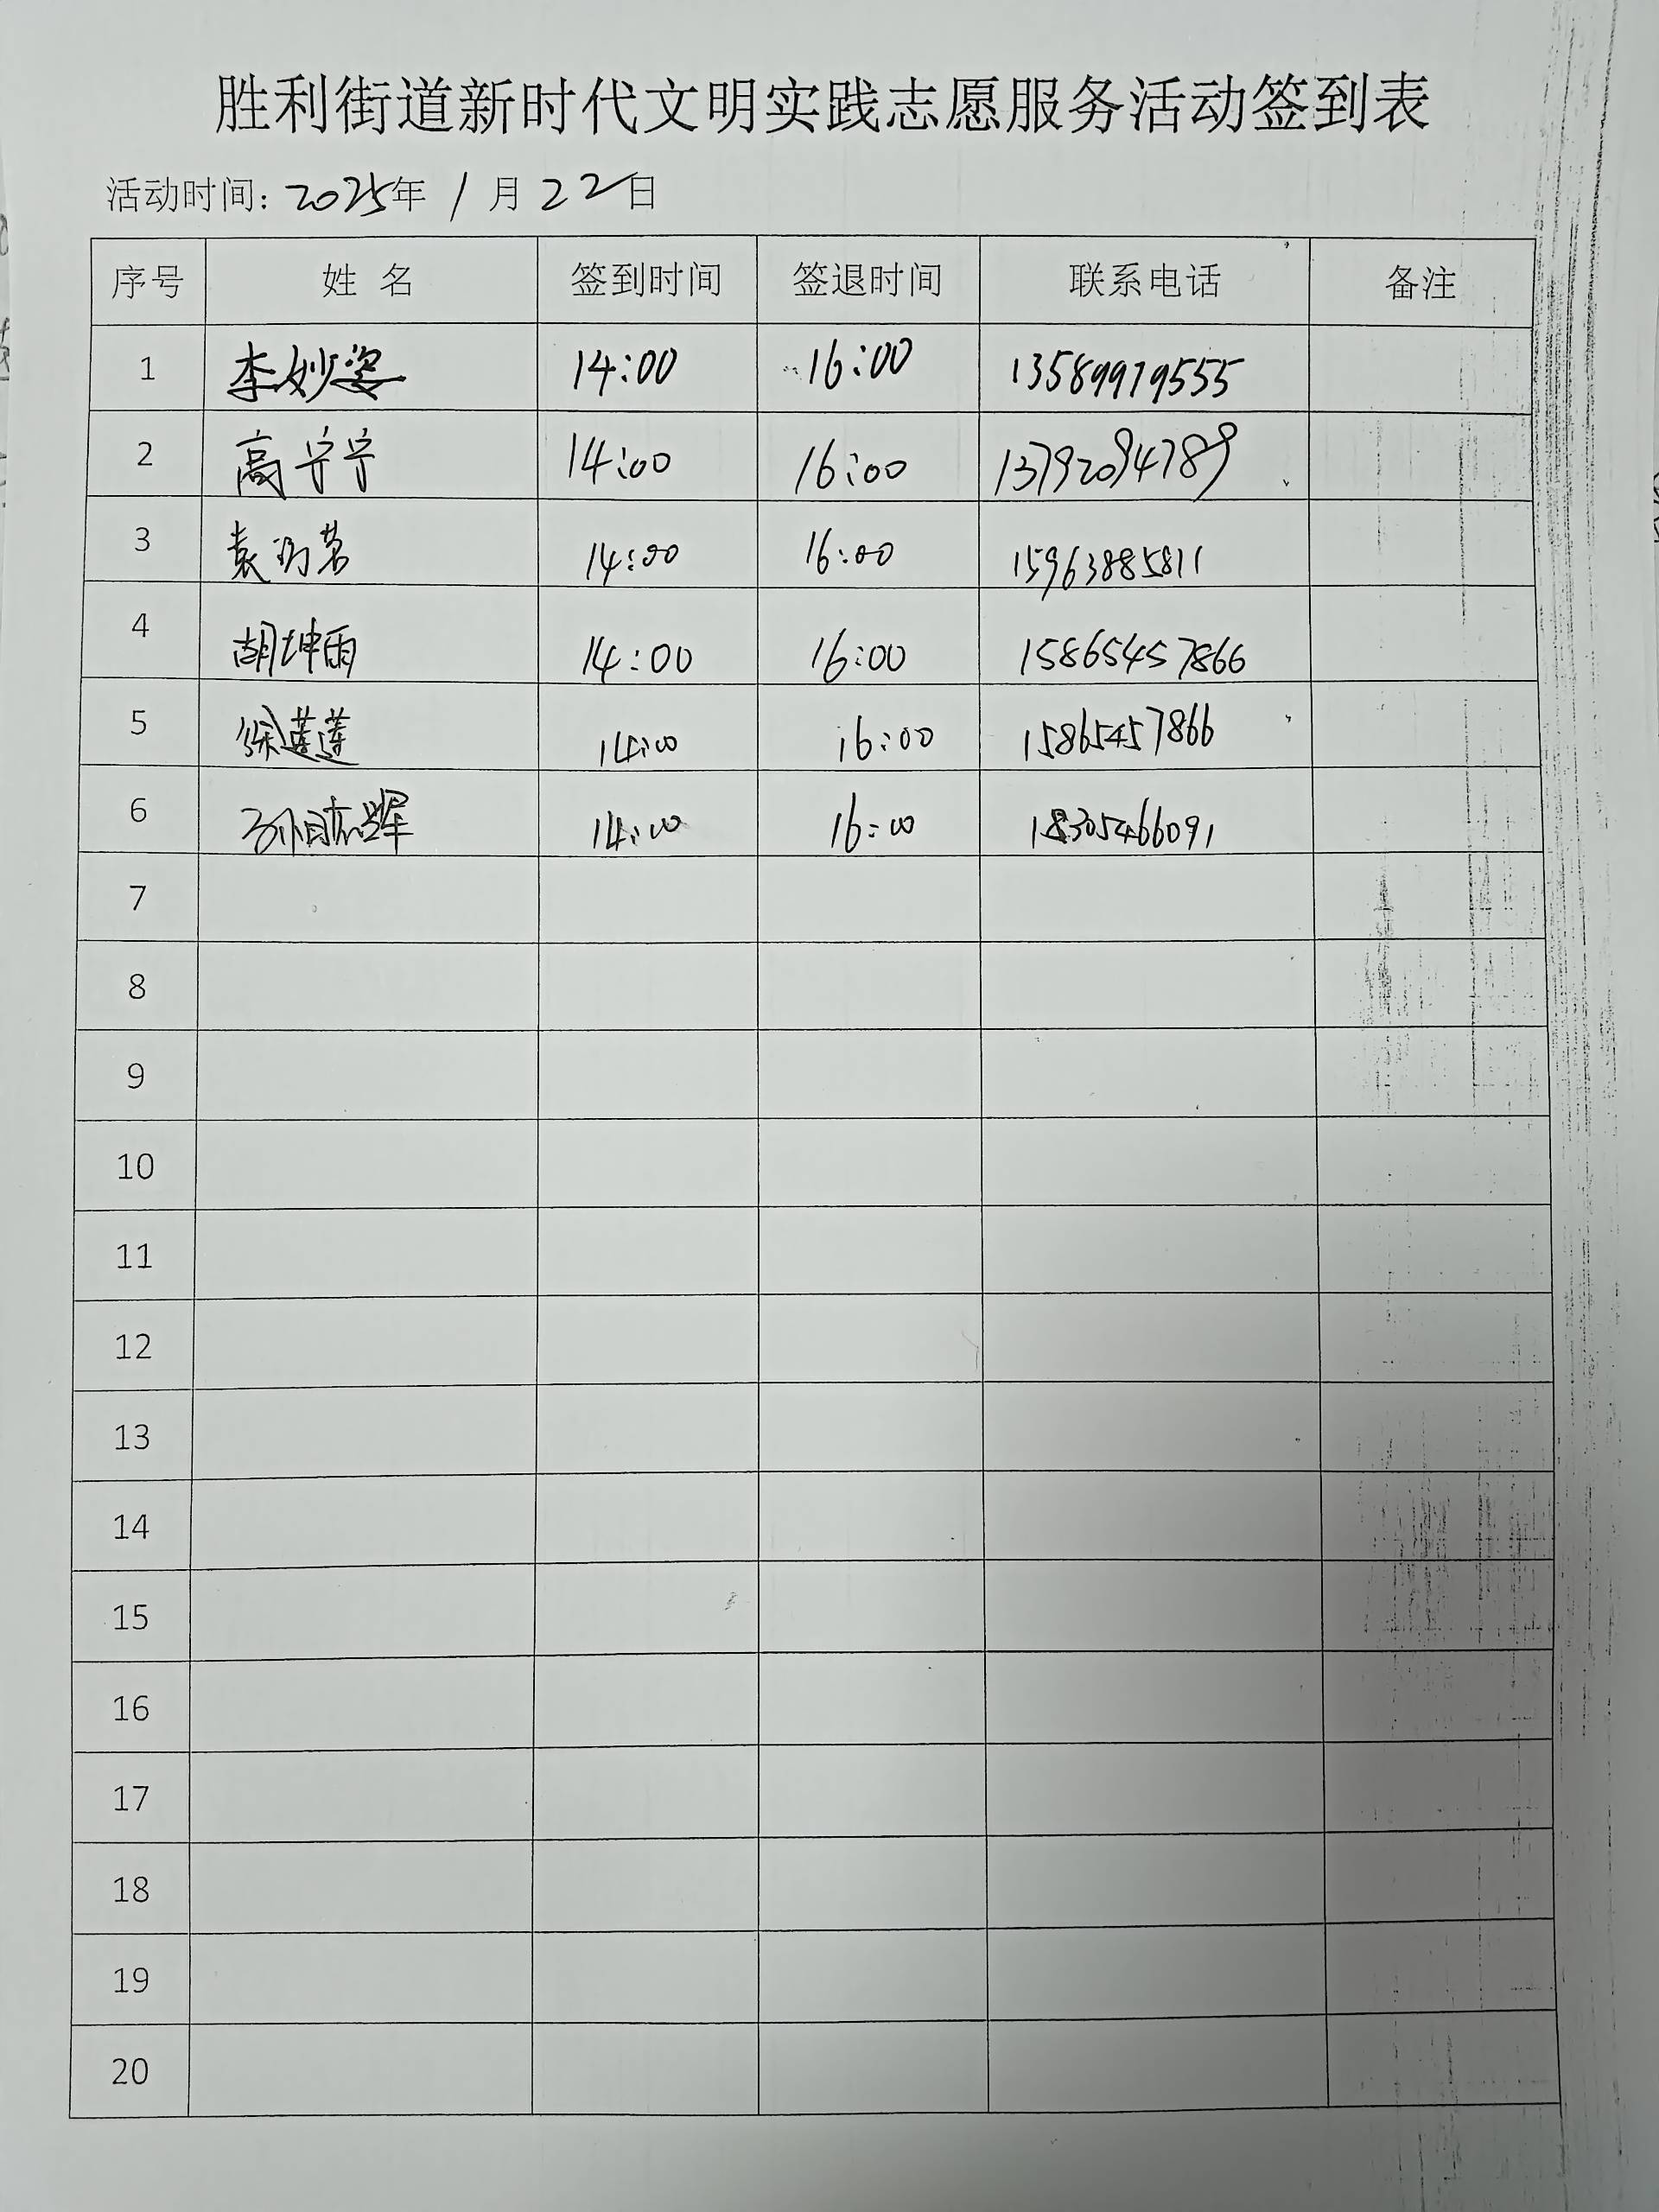 胜利街道新时代文明实践志愿服务活动签到表
活动时间: 2025年 1 月 22日
序号 姓 名 签到时间 签退时间 联系电话 备注
1 李妙姿 14:00 16:00 13589979555
2 高宁宁 14:00 16:00 13792094789
3 袁 茗 14:00 16:00 15963885811
4 胡坤雨 14:00 16:00 15865457866
5 徐莲莲 14:00 16:00 15865457866
6 孙 14:00 16:00 18305466091
7
8
9
10
11
12
13
14
15
16
17
18
19
20